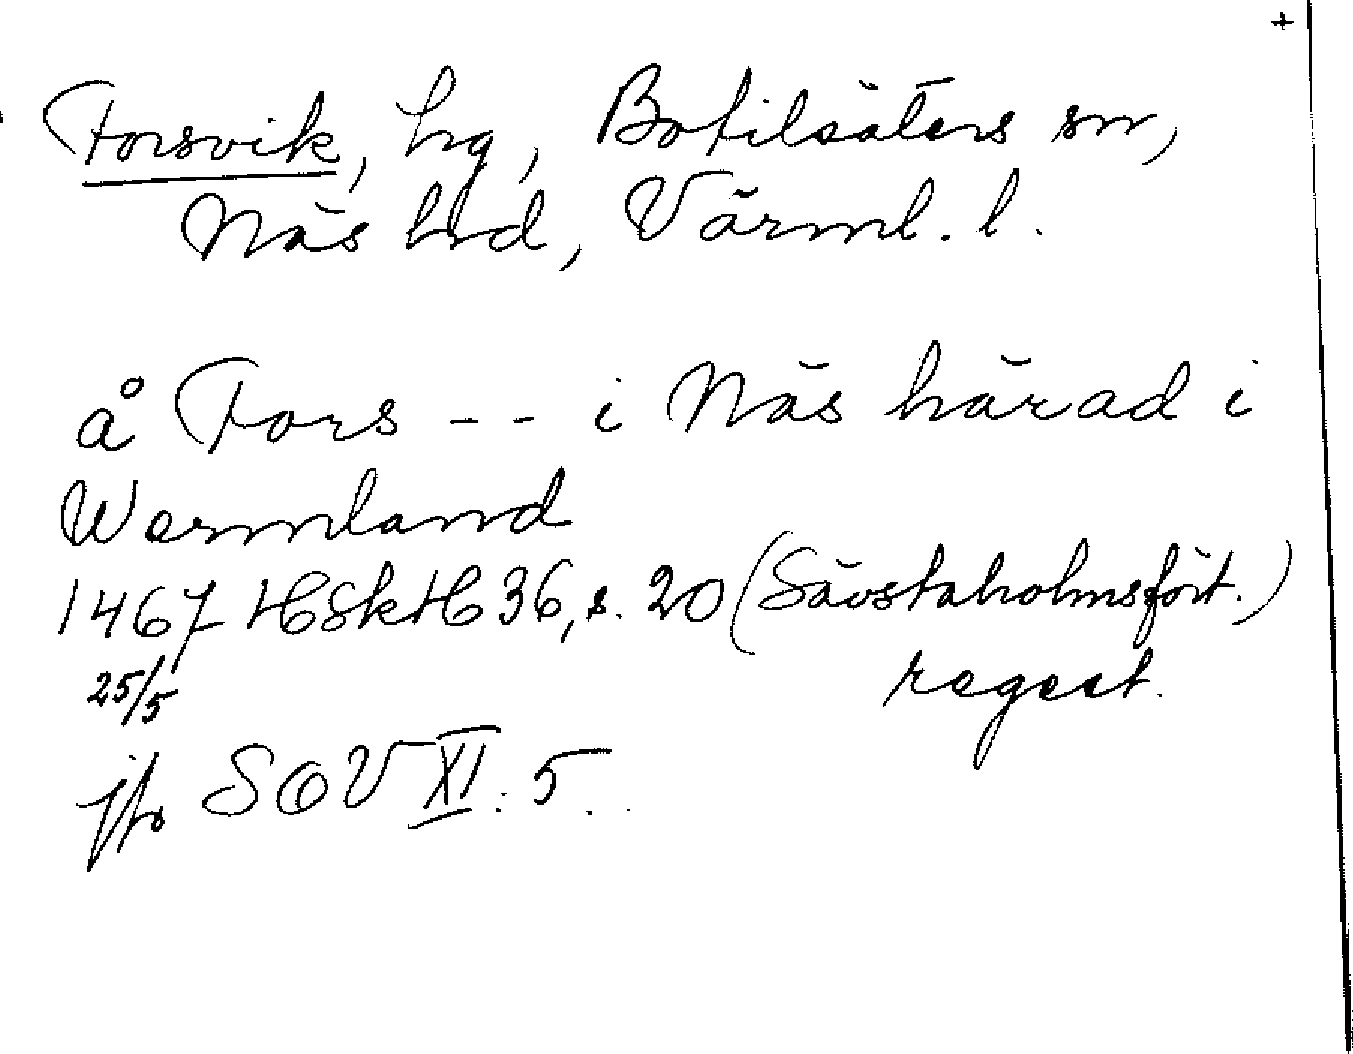 +
Forsvik, hg, Botilsäters sn,
Näs hrd, Värml. l.
å Fors -- i Näs härad i
Wermland
1467 HSkH 36, s. 20 (Sävstaholmsfört.)
25/5 regest.
jfr SOV XI: 5.